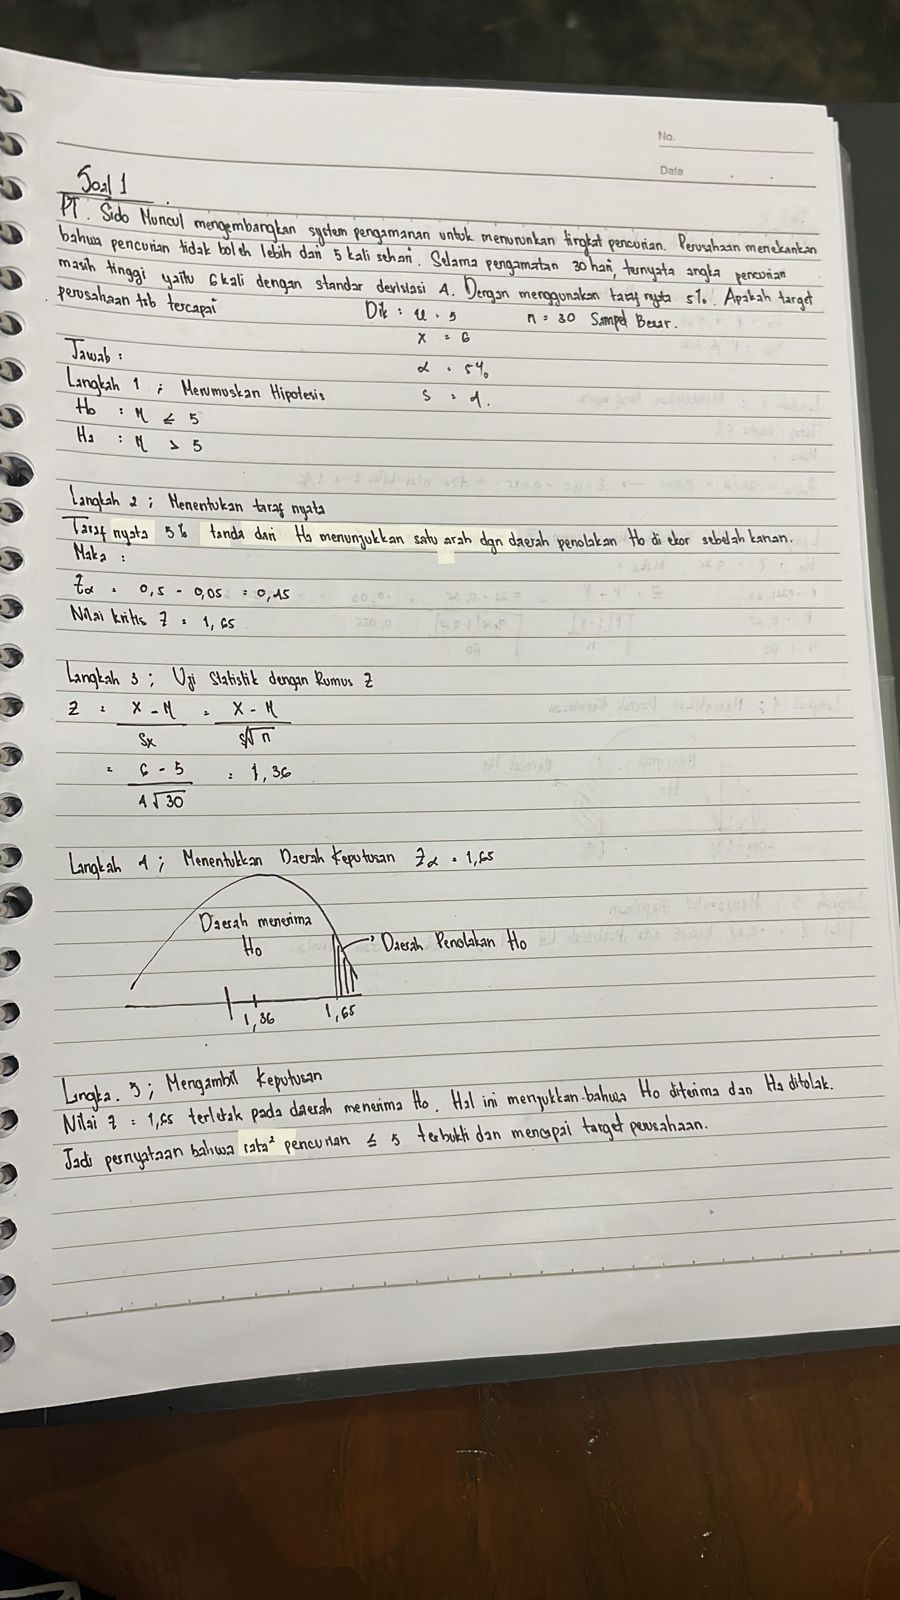 No.
Date
Soal 1
PT. Sido Muncul mengembangkan system pengamanan untuk menurunkan tingkat pencurian. Perusahaan menekankan
bahwa pencurian tidak boleh lebih dari 5 kali sehari. Selama pengamatan 30 hari, ternyata angka pencurian
masih tinggi yaitu 6 kali dengan standar devisiasi 4. Dengan menggunakan taraf nyta 5%. Apakah target
perusahaan tsb tercapai
Dik : μ = 5 n = 30 Sampel Besar.
x = 6
Jawab :
α = 5%
Langkah 1 ; Merumuskan Hipotesis
s = 4.
Ho : M ≤ 5
Ha : M > 5
Langkah 2 ; Menentukan taraf nyata
Taraf nyata 5% tanda dari Ha menunjukkan satu arah dgn daerah penolakan Ho di ekor sebelah kanan.
Maka :
Zα = 0,5 - 0,05 = 0,45
Nilai kritis Z = 1,65
Langkah 3 ; Uji Statistik dengan Rumus Z
Z = X - M = X - M
Sx S√n
= 6 - 5 = 1,36
4√30
Langkah 4 ; Menentukkan Daerah Keputusan Zα = 1,65
Daerah menerima
Ho
Daerah Penolakan Ho
1,36 1,65
Langka. 5 ; Mengambil Keputusan
Nilai Z = 1,65 terletak pada daerah menerima Ho. Hal ini menjukkan bahwa Ho diterima dan Ha ditolak.
Jadi pernyataan bahwa rata² pencurian ≤ 5 terbukti dan mencapai target perusahaan.